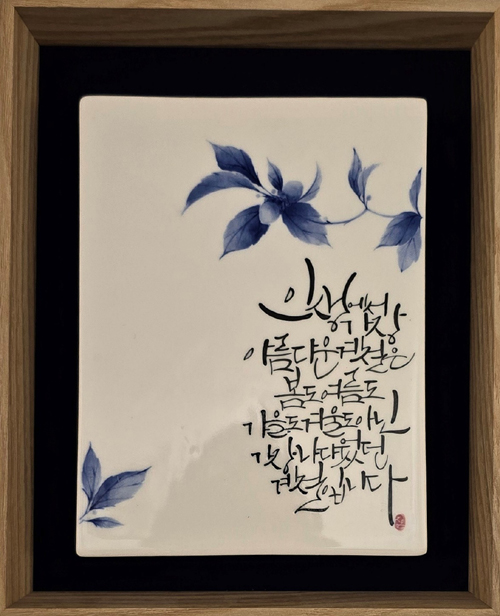 인생에서 가장
아름다운 계절은
봄도 여름도
가을도 겨울도 아닌
가장 나다웠던
계절입니다